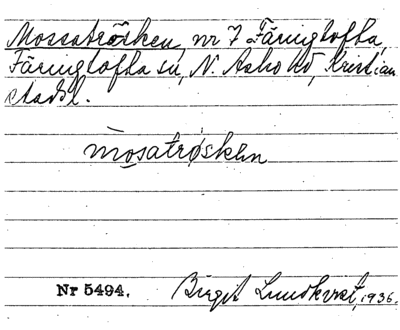 Mossatrösken, nr 7 Färingtofta,
Färingtofta sn, N. Åsbo hd, Kristian
stads l.
mosatrösken
Nr 5494. Birgit Lundkvist, 1936.